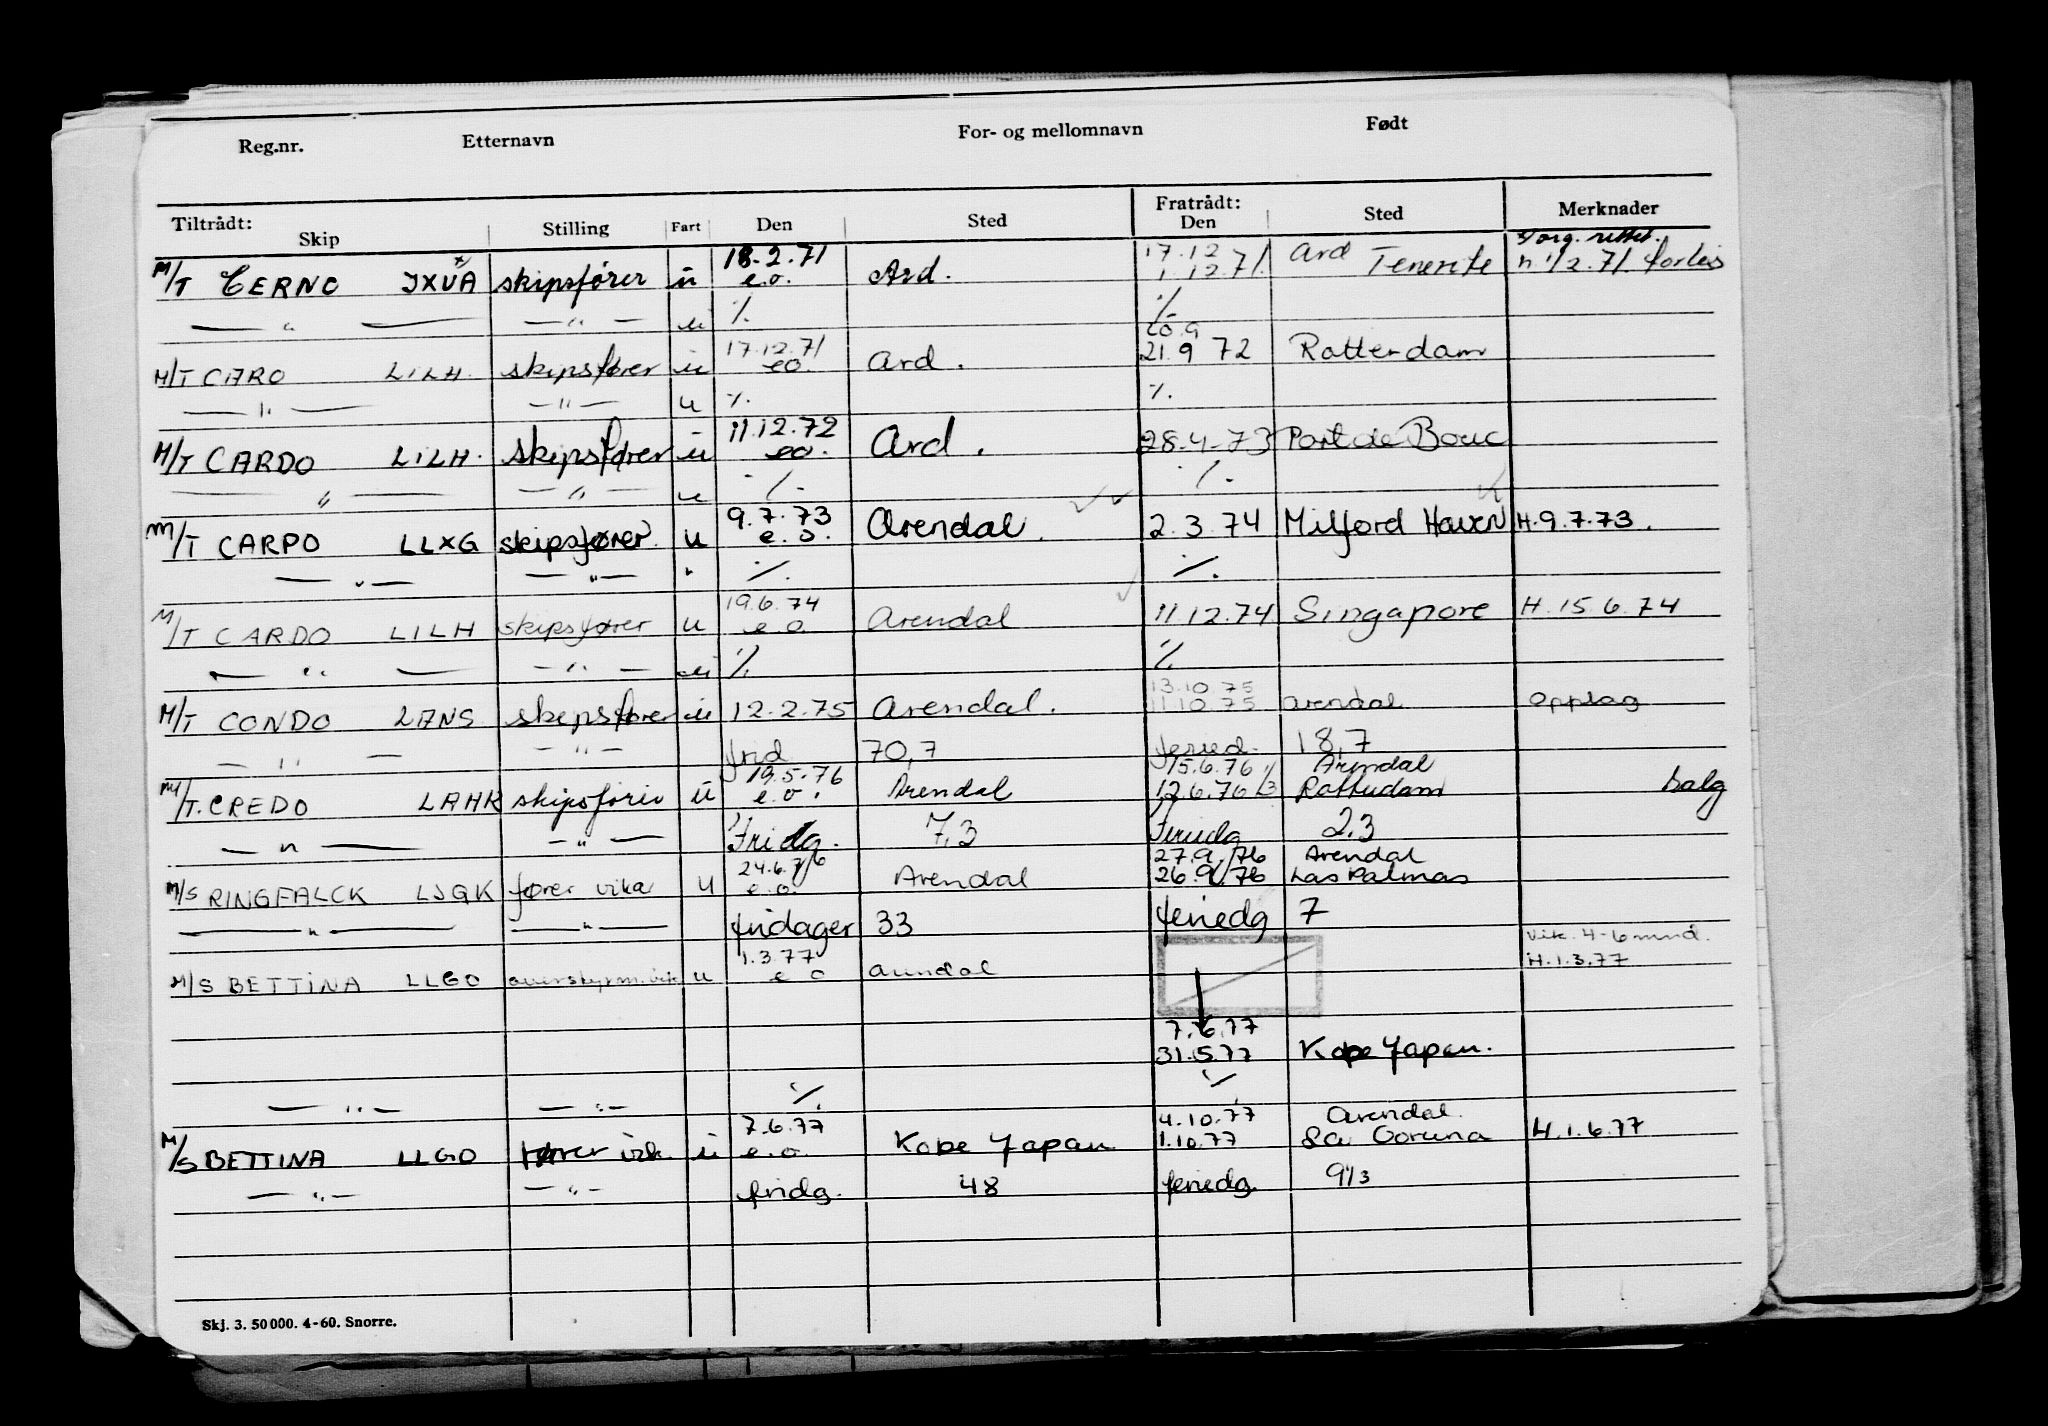 Reg.nr. Etternavn For- og mellomnavn Født
Tiltrådt: Skip Stilling Fart Den Sted Fratrådt: Den Sted Merknader
18.2.71 17.12 Ard x/org. rettet.
M/T CERNO JXUA x) skipsfører u e.o. Ard. 1.12.71. Tenerife h. 1/2.71
— " — — " — u ·/. ·/.
17.12.71 20.9
M/T CARO LILH. skipsfører u eo. Ard. 21.9 72 Rotterdam
— " — — " — u ·/. ·/.
11.12.72
M/T CARDO LILH. skipsfører u eo. Ard. 28.4.73 Port de Bouc
— " — — " — u ·/. ·/.
9.7.73
M/T CARPO LLXG skipsfører u e.o. Arendal. 2.3.74 Milford Haven H.9.7.73.
— " — — " — " ·/. ·/.
19.6.74
M/T CARDO LILH skipsfører u e.o. Arendal 11.12.74 Singapore H.15.6.74
— " — — " — u ·/. ·/.
13.10.75
M/T CONDO LANS skipsfører u 12.2.75 Arendal. 11.10.75 Arendal Opplag
— " — — " — frid 70,7 feried. 18,7
19.5.76 15.6.76 Arendal
M/T. CREDO LAHK skipsfører u e.o. Arendal 12.6.76 Rotterdam salg
— " — — " — Fridg. 7,3 Feriedg 2,3
24.6.76 27.9.76 Arendal
M/S RINGFALCK LJGK fører vika u e.o. Arendal 26.9.76 Las Palmas
— " — — " — fridager 33 feriedg 7
1.3.77 vik. 4-6 mnd.
M/S BETTINA LLGO overstyrm. vik u e o Arendal H.1.3.77
7.6.77
31.5.77 Kobe Japan.
— " — — " — ·/. ·/.
7.6.77 4.10.77 Arendal.
M/S BETTINA LLGO fører vik. u e.o. Kobe Japan 1.10.77 La Coruna H.1.6.77
— " — — " — fridg. 48 feriedg. 9 1/3
Skj. 3. 50000. 4-60. Snorre.